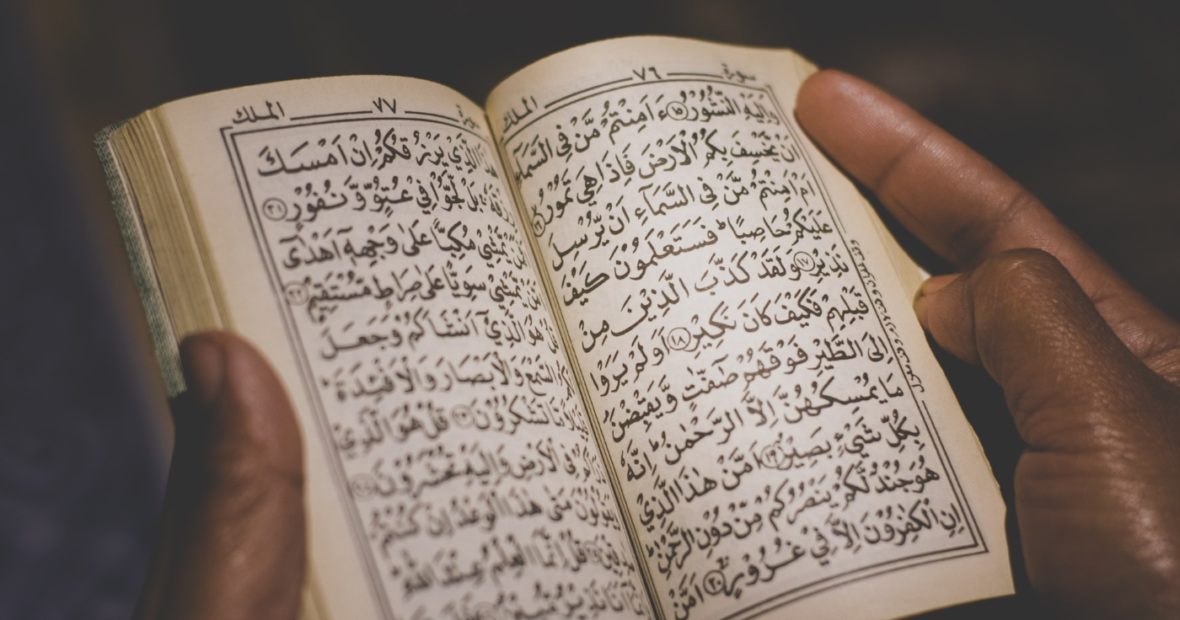 سورة ٧٦ الملك
وَاِلَيْهِ النُّشُوْرُ ١٥ ءَاَمِنْتُمْ مَّنْ فِي السَّمَآءِ
اَنْ يَّخْسِفَ بِكُمُ الْاَرْضَ فَاِذَا هِيَ تَمُوْرُ ١٦
اَمْ اَمِنْتُمْ مَّنْ فِي السَّمَآءِ اَنْ يُّرْسِلَ
عَلَيْكُمْ حَاصِبًا ؕ فَسَتَعْلَمُوْنَ كَيْفَ
نَذِيْرِ ١٧ وَلَقَدْ كَذَّبَ الَّذِيْنَ مِنْ
قَبْلِهِمْ فَكَيْفَ كَانَ نَكِيْرِ ١٨ اَوَلَمْ يَرَوْا
اِلَى الطَّيْرِ فَوْقَهُمْ صٰٓفّٰتٍ وَّيَقْبِضْنَ
مَا يُمْسِكُهُنَّ اِلَّا الرَّحْمٰنُ ؕ اِنَّهٗ
بِكُلِّ شَيْءٍۭ بَصِيْرٌ ١٩ اَمَّنْ هٰذَا الَّذِيْ
هُوَ جُنْدٌ لَّكُمْ يَنْصُرُكُمْ مِّنْ دُوْنِ الرَّحْمٰنِ ؕ
اِنِ الْكٰفِرُوْنَ اِلَّا فِيْ غُرُوْرٍ ٢٠ اَمَّنْ
٧٧ الملك
هٰذَا الَّذِيْ يَرْزُقُكُمْ اِنْ اَمْسَكَ
رِزْقَهٗ بَلْ لَّجُّوْا فِيْ عُتُوٍّ وَّنُفُوْرٍ ٢١
يَّمْشِيْ مُكِبًّا عَلٰى وَجْهِهٖٓ اَهْدٰٓى
يَّمْشِيْ سَوِيًّا عَلٰى صِرَاطٍ مُّسْتَقِيْمٍ ٢٢
قُلْ هُوَ الَّذِيْٓ اَنْشَاَكُمْ وَجَعَلَ
لَكُمُ السَّمْعَ وَالْاَبْصَارَ وَالْاَفْئِدَةَ ؕ
قَلِيْلًا مَّا تَشْكُرُوْنَ ٢٣ قُلْ هُوَ الَّذِيْ
فِي الْاَرْضِ وَاِلَيْهِ تُحْشَرُوْنَ ٢٤
وَيَقُوْلُوْنَ مَتٰى هٰذَا الْوَعْدُ اِنْ كُنْتُمْ
قُلْ اِنَّمَا الْعِلْمُ عِنْدَ اللّٰهِ
اَنَا نَذِيْرٌ مُّبِيْنٌ